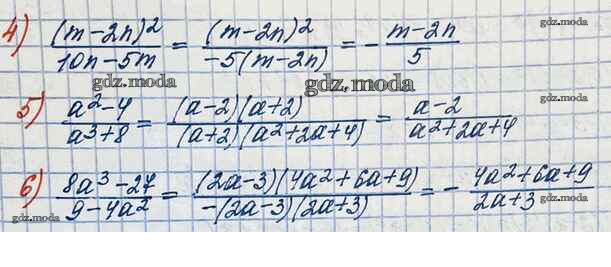 4) (m-2n)²/10n-5m = (m-2n)²/-5(m-2n) = - m-2n/5
gdz.moda
gdz.moda
gdz.moda
gdz.moda
5) a²-4/a³+8 = (a-2)(a+2)/(a+2)(a²+2a+4) = a-2/a²+2a+4
gdz.moda
gdz.moda
gdz.moda
6) 8a³-27/9-4a² = (2a-3)(4a²+6a+9)/-(2a-3)(2a+3) = - 4a²+6a+9/2a+3
gdz.moda
gdz.moda
gdz.moda